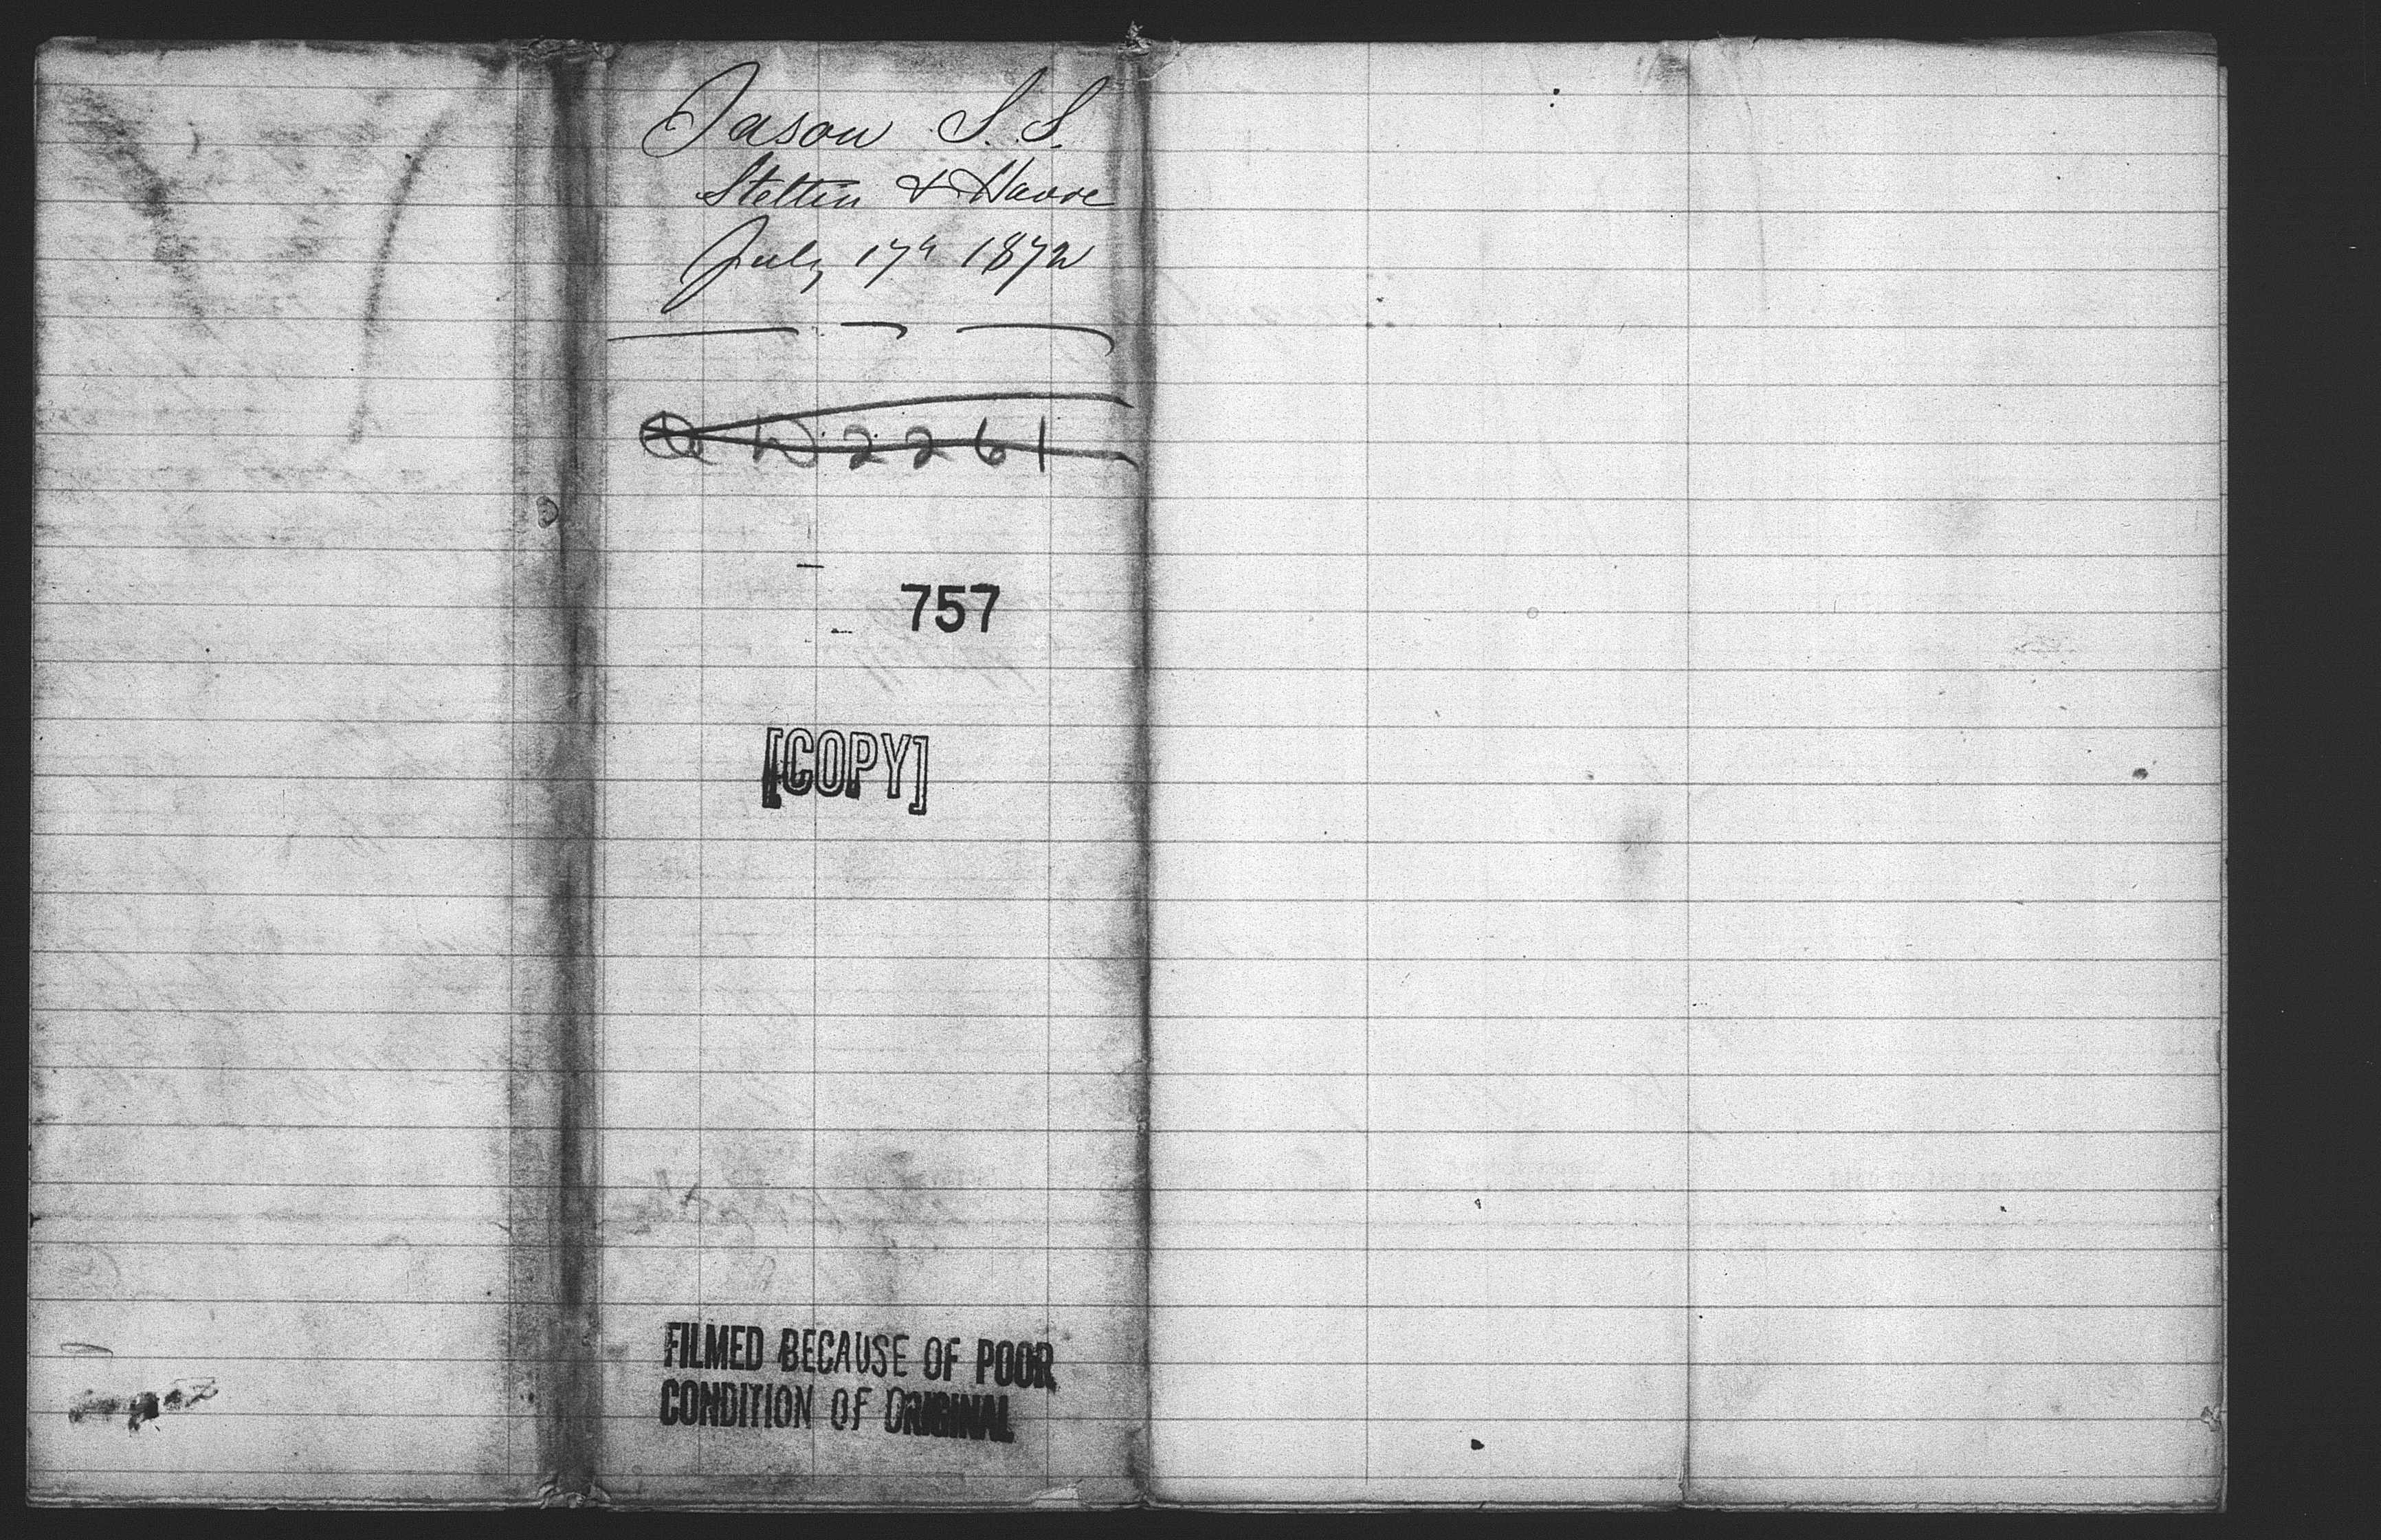 Jason S.S.
Stettin & Havre
July 17th 1872
2261
757
[COPY]
FILMED BECAUSE OF POOR
CONDITION OF ORIGINAL